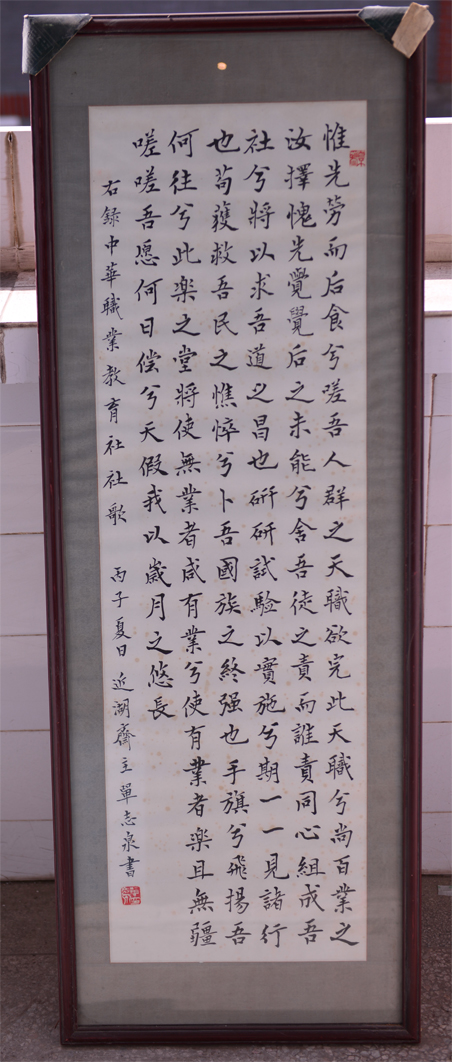 惟先劳而后食兮嗟吾人群之天職欲完此天職兮尚百業之
汝擇愧先覺覺后之未能兮舍吾徒之責而誰責同心組成吾
社兮將以求吾道之昌也研研試驗以實施兮期一一見諸行
也苟獲救吾民之憔悴兮卜吾國族之終强也手旗兮飛揚吾
何往兮此楽之堂將使無業者咸有業兮使有業者楽且無疆
嗟嗟吾愿何日偿兮天假我以歲月之悠長
右錄中華職業教育社社歌 丙子夏日近湖齋主單志泉書